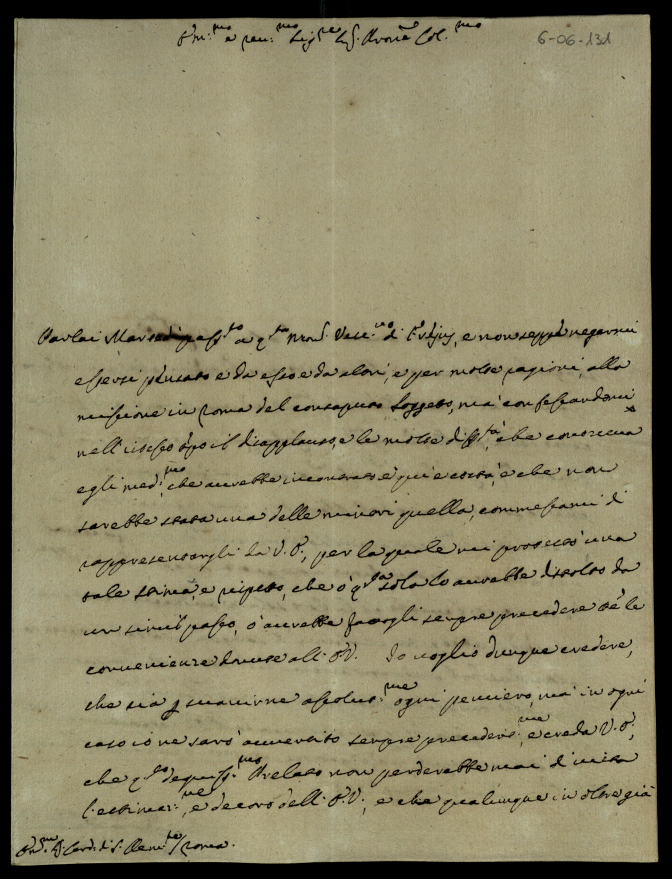 Em.mo e rev.mo Sig.re Sig. Prone Col.mo
6-06-131
Parlai Martedì pass.to a q.to Mons. Vesc.vo di Frejus, e non seppe negarmi
essersi pensato e da esso e da altri, e per molte ragioni, alla
missione in Roma del consaputo soggetto, ma confessandomi
nell'istesso tpo il disapplauso, e le molte diff.tà, che conosceva
egli med.mo, che avrebbe incontrato e qui e costà, e che non
sarebbe stata una delle minori quella, commessami di
rappresentargli da V. E., per la quale mi protestò una
tale stima, e rispetto, che ò q.ta sola lo avrebbe distolto da
un simil passo, ò avrebbe fattogli sempre precedere tutte le
convenienze dovute all' E. V. Io voglio dunque credere,
che sia p svanirne assolut.me ogni pensiero, ma in ogni
caso io ne sarò avvertito sempre precedent.me, e creda V. E.,
che q.to degniss.mo Prelato non perderebbe mai di mira
l'estimaz.ne, e decoro dell' E. V., e che qualunque in oltre già
Em.mo Sig. Card. di S. Clem.te / Roma.